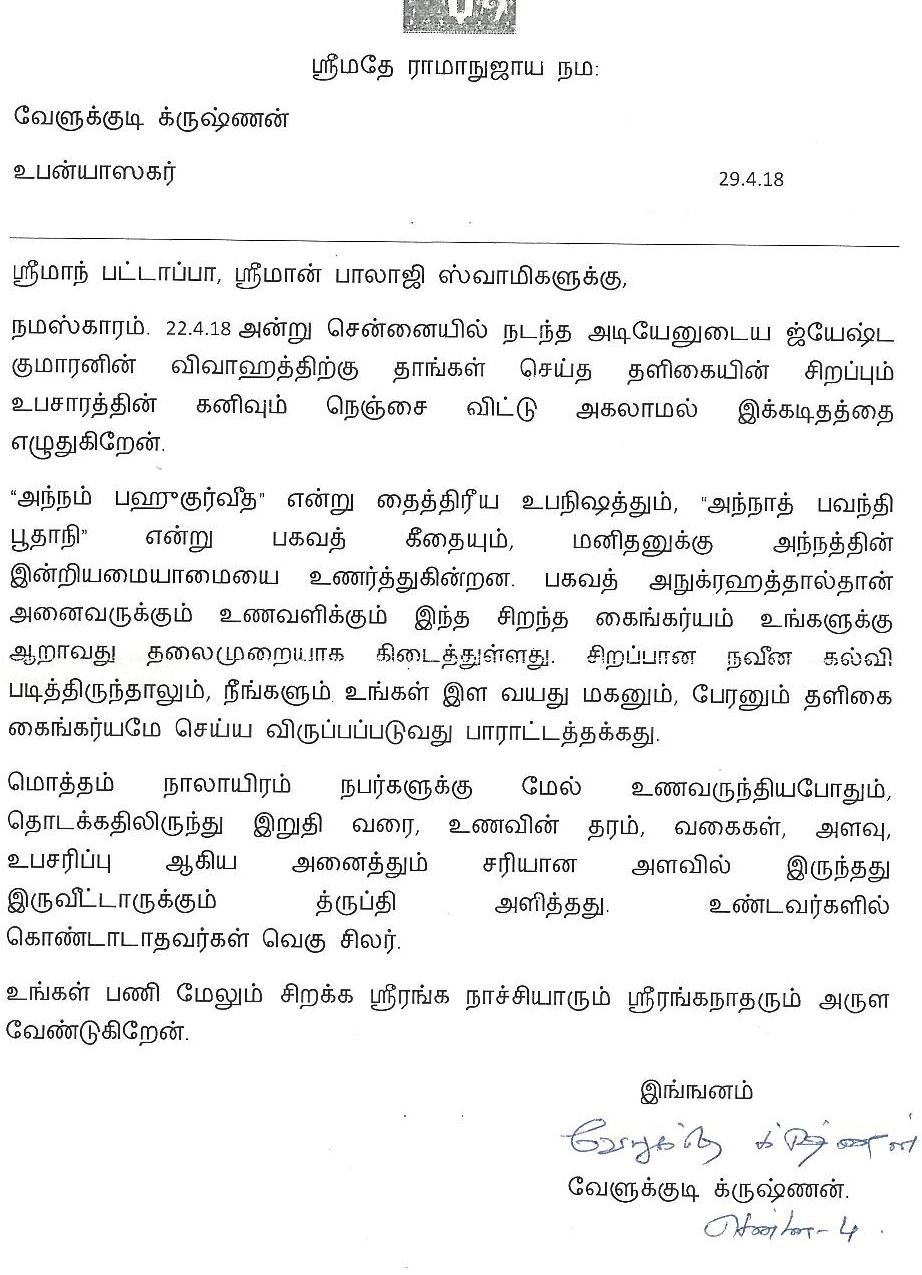 ஸ்ரீமதே ராமாநுஜாய நம:
வேளுக்குடி க்ருஷ்ணன்
உபன்யாஸகர்
29.4.18
ஸ்ரீமாந் பட்டாப்பா, ஸ்ரீமான் பாலாஜி ஸ்வாமிகளுக்கு,
நமஸ்காரம். 22.4.18 அன்று சென்னையில் நடந்த அடியேனுடைய ஜ்யேஷ்ட
குமாரனின் விவாஹத்திற்கு தாங்கள் செய்த தளிகையின் சிறப்பும்
உபசாரத்தின் கனிவும் நெஞ்சை விட்டு அகலாமல் இக்கடிதத்தை
எழுதுகிறேன்.
“அந்நம் பஹுகுர்வீத” என்று தைத்திரீய உபநிஷத்தும், “அந்நாத் பவந்தி
பூதாநி” என்று பகவத் கீதையும், மனிதனுக்கு அந்நத்தின்
இன்றியமையாமையை உணர்த்துகின்றன. பகவத் அநுக்ரஹத்தால்தான்
அனைவருக்கும் உணவளிக்கும் இந்த சிறந்த கைங்கர்யம் உங்களுக்கு
ஆறாவது தலைமுறையாக கிடைத்துள்ளது. சிறப்பான நவீன கல்வி
படித்திருந்தாலும், நீங்களும் உங்கள் இள வயது மகனும், பேரனும் தளிகை
கைங்கர்யமே செய்ய விருப்பப்படுவது பாராட்டத்தக்கது.
மொத்தம் நாலாயிரம் நபர்களுக்கு மேல் உணவருந்தியபோதும்,
தொடக்கதிலிருந்து இறுதி வரை, உணவின் தரம், வகைகள், அளவு,
உபசரிப்பு ஆகிய அனைத்தும் சரியான அளவில் இருந்தது
இருவீட்டாருக்கும் த்ருப்தி அளித்தது. உண்டவர்களில்
கொண்டாடாதவர்கள் வெகு சிலர்.
உங்கள் பணி மேலும் சிறக்க ஸ்ரீரங்க நாச்சியாரும் ஸ்ரீரங்கநாதரும் அருள
வேண்டுகிறேன்.
இங்ஙனம்
வேளுக்குடி க்ருஷ்ணன்
வேளுக்குடி க்ருஷ்ணன்.
சென்னை-4.